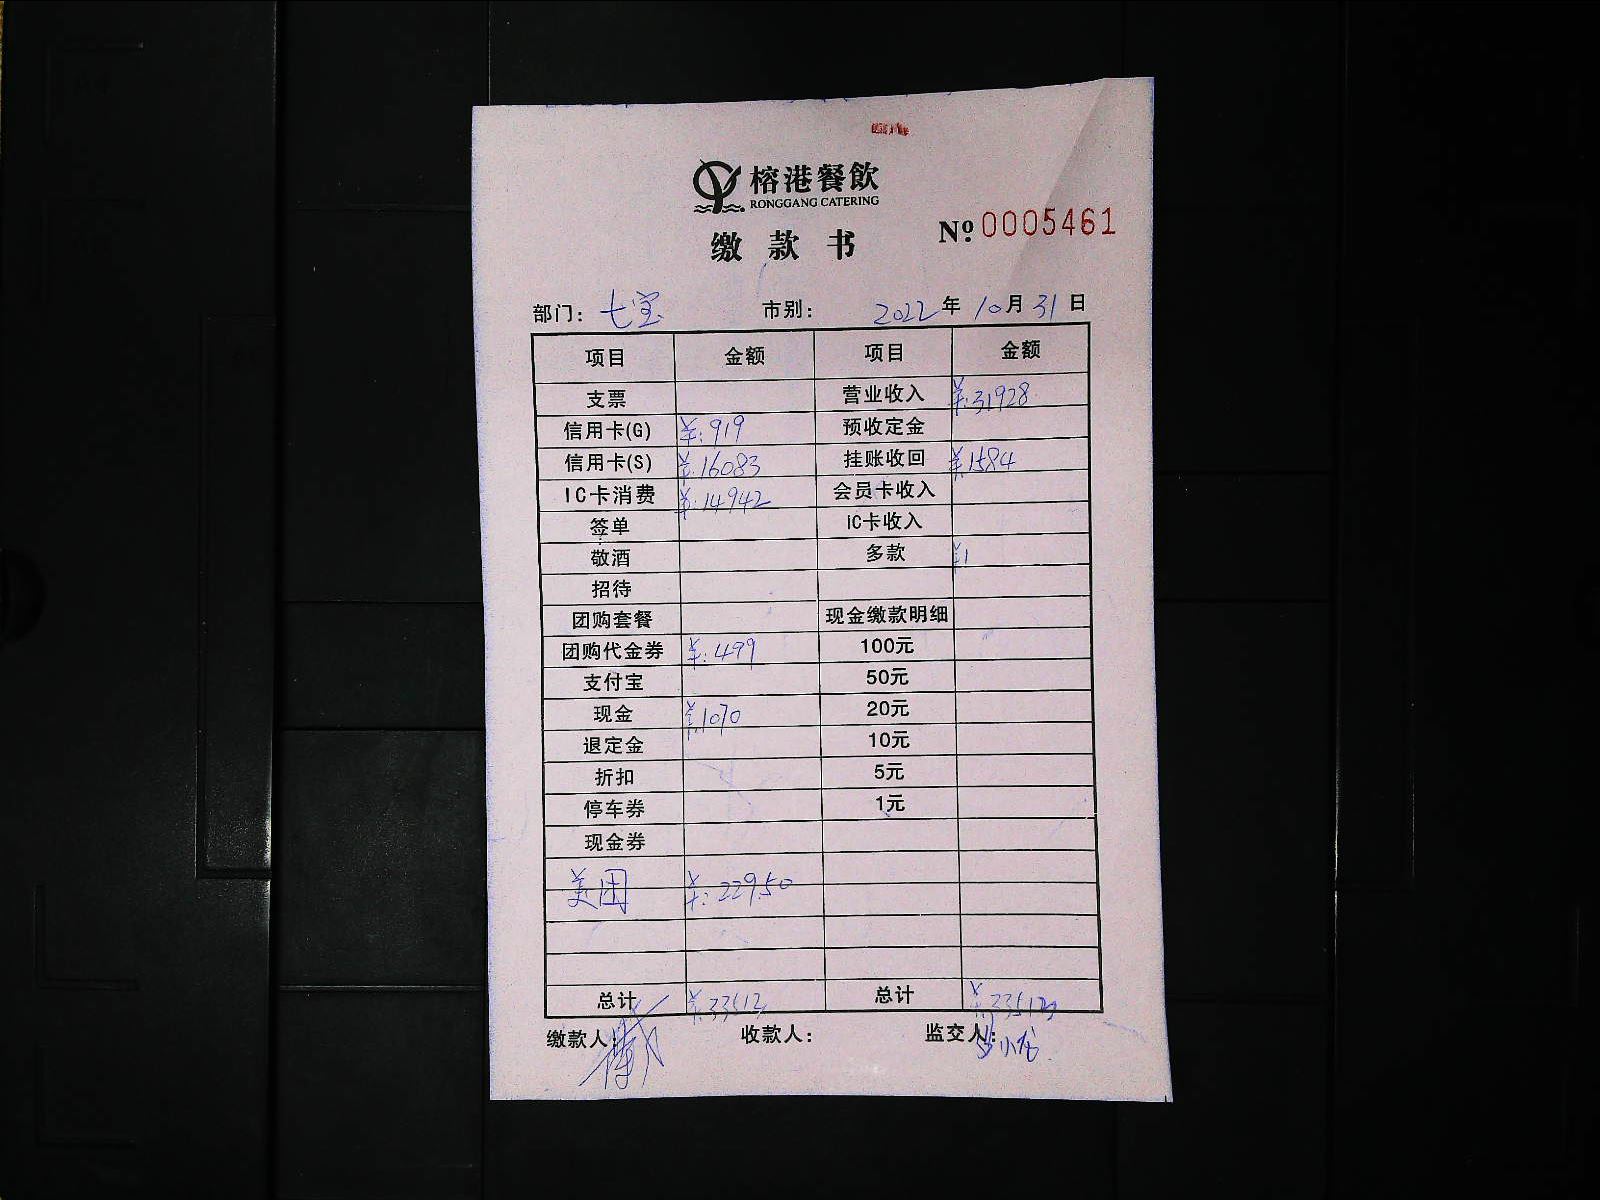 榕港餐飲
RONGGANG CATERING
缴款书
№ 0005461
部门：七宝 市别： 2022年10月31日
项目 金额 项目 金额
支票 营业收入 ¥:31928
信用卡(G) ¥:919 预收定金
信用卡(S) ¥:16083 挂账收回 ¥1584
IC卡消费 ¥:14942 会员卡收入
签单 IC卡收入
敬酒 多款 ¥1
招待
团购套餐 现金缴款明细
团购代金券 ¥:499 100元
支付宝 50元
现金 ¥1070 20元
退定金 10元
折扣 5元
停车券 1元
现金券
美团 ¥:229.50
总计 ¥:33513 总计 ¥:33513
缴款人： 收款人： 监交人：